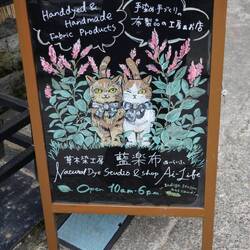 Handdyed &
Handmade
Fabric Products
手染め手づくり
布製品の工房&お店
草木染工房 藍楽布
Natural Dye Studio & shop Ai-Life
Open 10am-6pm